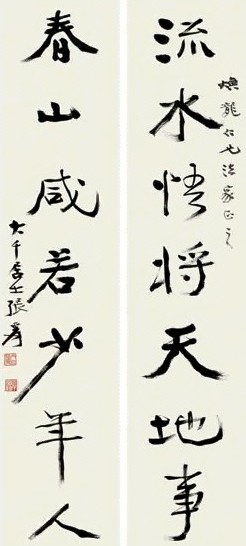 流水悟將天地事
煥龍仁兄法家正之
春山咸若少年人
大千居士張爰